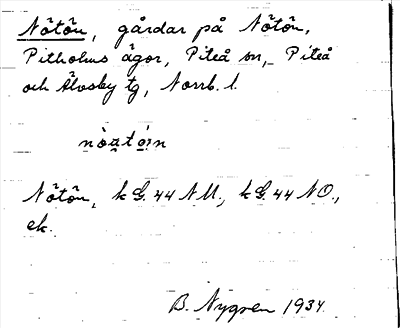 Nötön, gårdar på Nötön,
Pitholms ägor, Piteå sn, Piteå
och Älvsby tg, Norrb. l.
nö̀ztó̤:n
Nötön, k G. 44 NV., k G. 44 NO.,
ek.
B. Nygren 1934.